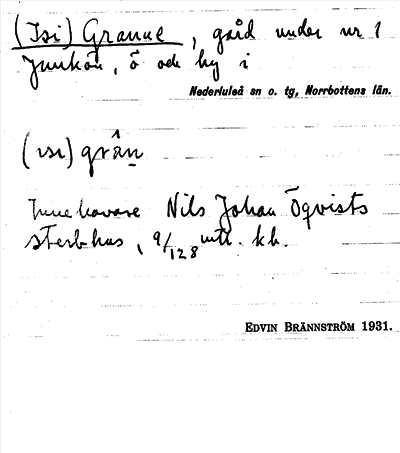 (Isi) Granne, gård under nr 1
Junkön, ö och by i
Nederluleå sn o. tg, Norrbottens län.
(ısı) grân̠
Innehavare Nils Johan Öqvists
sterbhus, 9/128 mtl. kh.
EDVIN BRÄNNSTRÖM 1931.